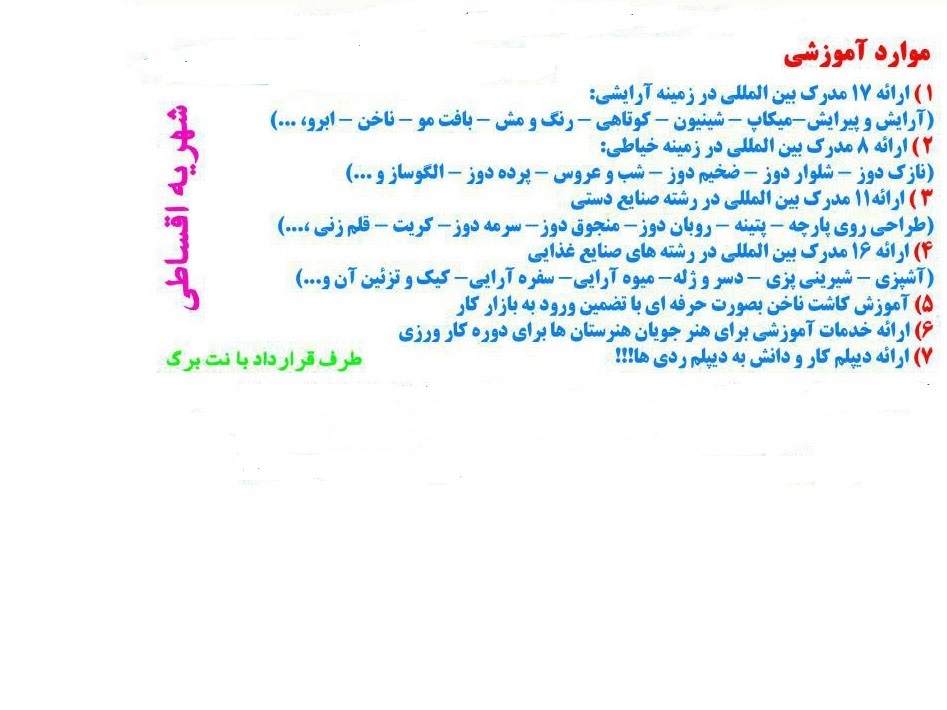 موارد آموزشی
۱) ارائه ۱۷ مدرک بین المللی در زمینه آرایشی:
(آرایش و پیرایش–میکاپ – شینیون – کوتاهی – رنگ و مش – بافت مو – ناخن – ابرو، ...)
۲) ارائه ۸ مدرک بین المللی در زمینه خیاطی:
(نازک دوز – شلوار دوز – ضخیم دوز – شب و عروس – پرده دوز – الگوساز و ...)
۳) ارائه۱۱ مدرک بین المللی در رشته صنایع دستی
(طراحی روی پارچه – پتینه – روبان دوز– منجوق دوز– سرمه دوز– کریت – قلم زنی ،...)
۴) ارائه ۱۶ مدرک بین المللی در رشته های صنایع غذایی
(آشپزی – شیرینی پزی – دسر و ژله– میوه آرایی– سفره آرایی– کیک و تزئین آن و...)
۵) آموزش کاشت ناخن بصورت حرفه ای با تضمین ورود به بازار کار
۶) ارائه خدمات آموزشی برای هنر جویان هنرستان ها برای دوره کار ورزی
۷) ارائه دیپلم کار و دانش به دیپلم ردی ها!!!
شهریه اقساطی
طرف قرار داد با نت برگ